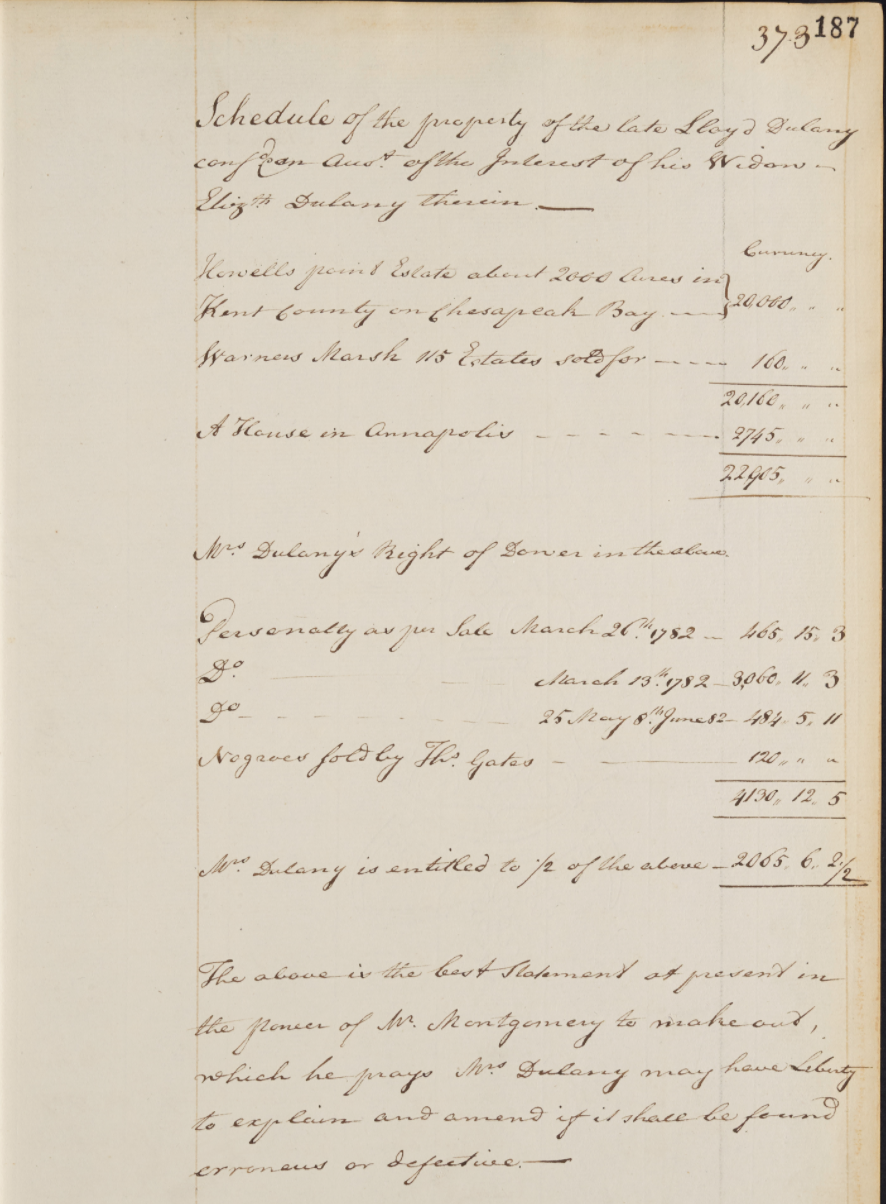 373 187
Schedule of the property of the late Lloyd Dulany
conf.d on Acct. of the Interest of his Widow
Eliz.th Dulany therein.—
Currency.
Howells point Estate about 2000 Acres in
Kent County on Chesapeak Bay - - - } 20,000 " " "
Warners Marsh 115 Estates sold for - - - - 160 " " "
20,160 " " "
A House in Annapolis - - - - - - - 2745 " " "
22,905 " " "
Mrs. Dulany's Right of Dower in the above.
Personalty as per Sale March 26th. 1782 - 465 " 15 " 3
Do. March 13th. 1782 - 3,060 " 11 " 3
Do - - - - - 25 May 8th. June 82 - 484 " 5 " 11
Negroes sold by Ths. Gates - 120 " " "
4130 " 12 " 5
Mrs. Dulany is entitled to 1/2 of the above - 2065 " 6 " 2 1/2
The above is the best Statement at present in
the power of Mr. Montgomery to make out,
which he prays Mrs Dulany may have Liberty
to explain and amend if it shall be found
erroneus or defective.—